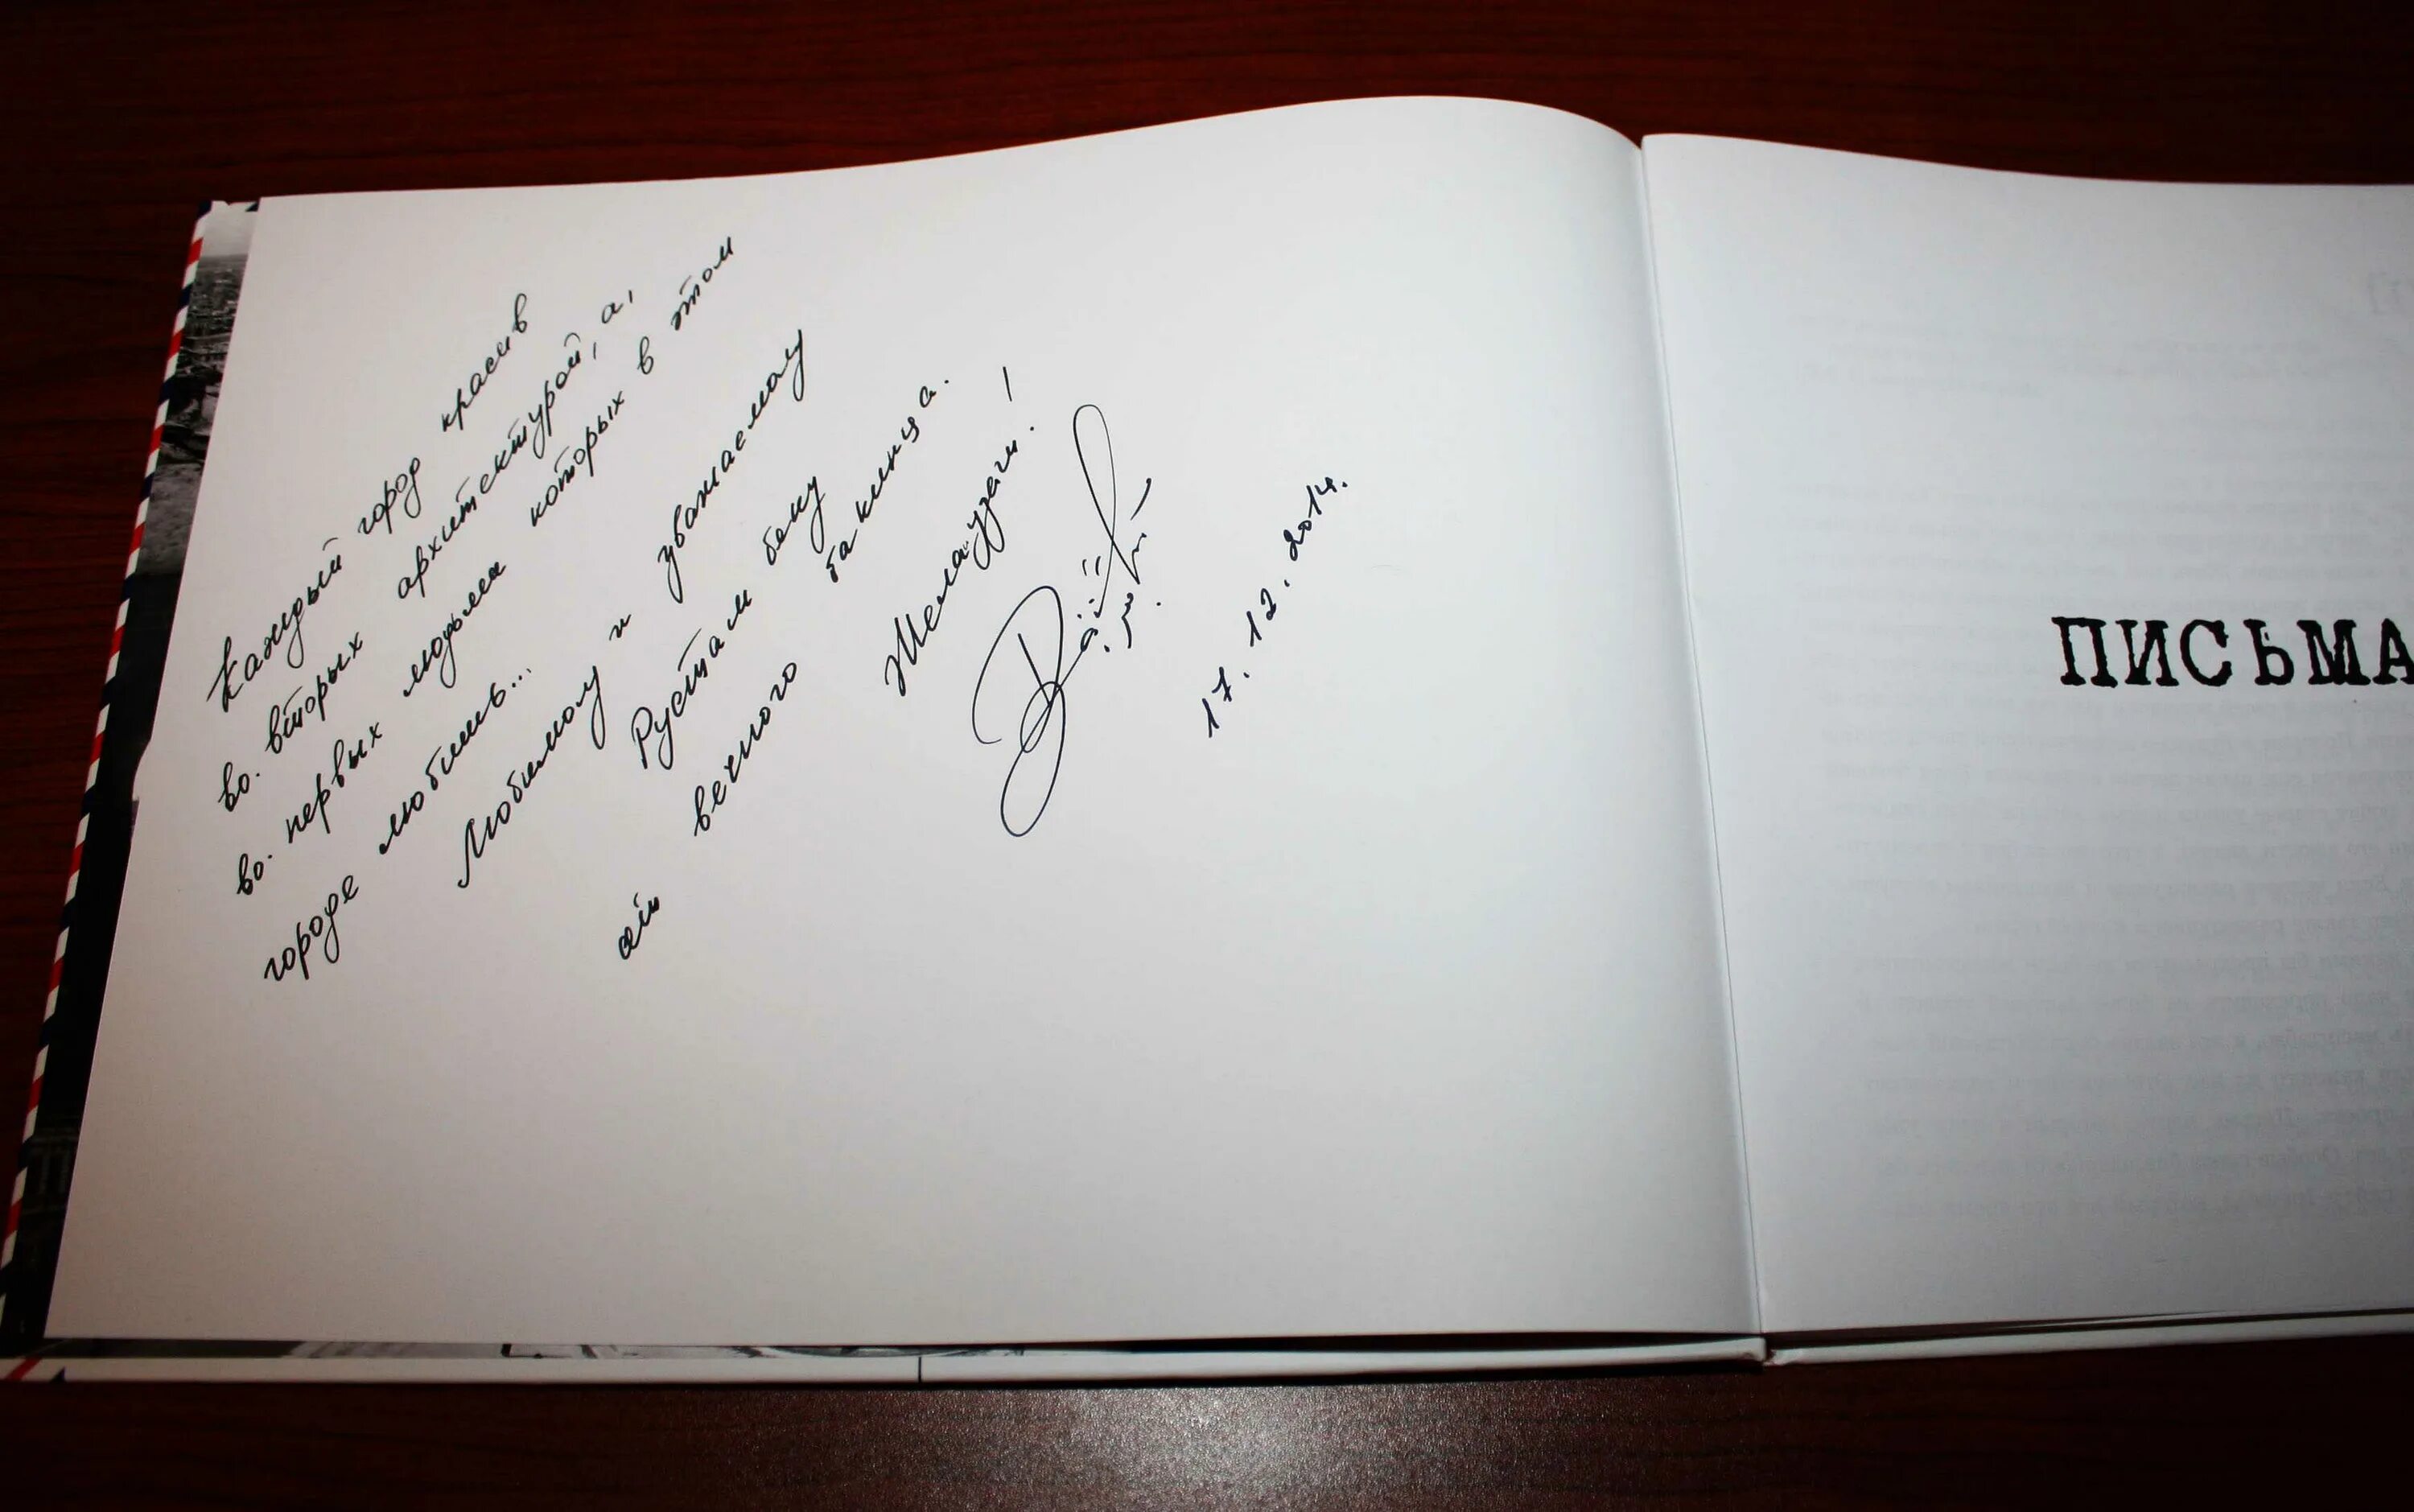 Каждый город красив
во. вторых архитектурой, а,
во. первых людьми которых в этом
городе любишь...
Любимому и уважаемому
Рустам беку
от вечного бакинца.
17.12.2014.
ПИСЬМА